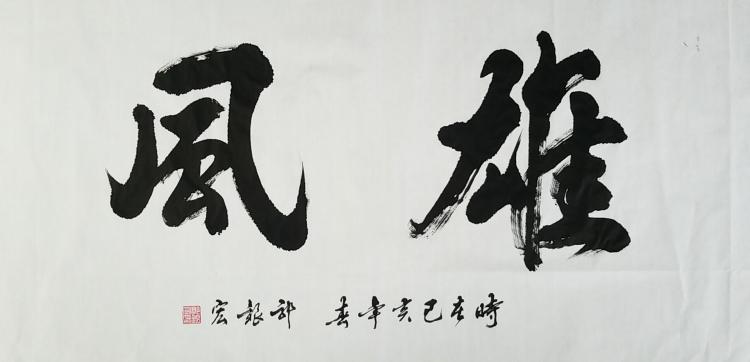 雄風
時在己亥年春 許銀宏